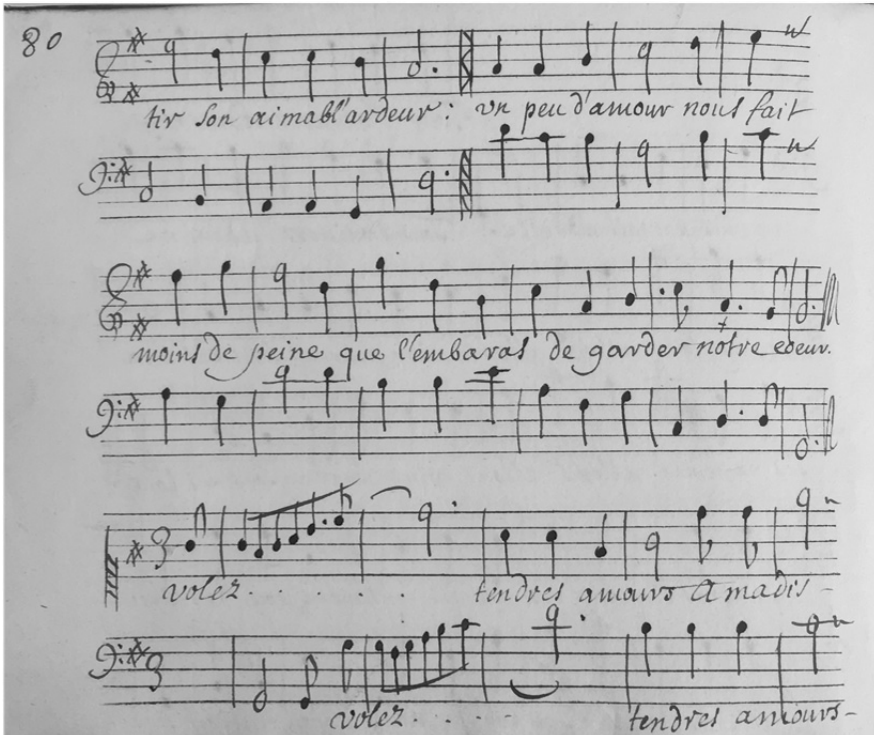 80
tir son aimabl'ardeur: vn peu d'amour nous fait
moins de peine que l'embaras de garder notre coeur.
3
volez . . . . tendres amours Amadis -
3
volez . . . tendres amours -